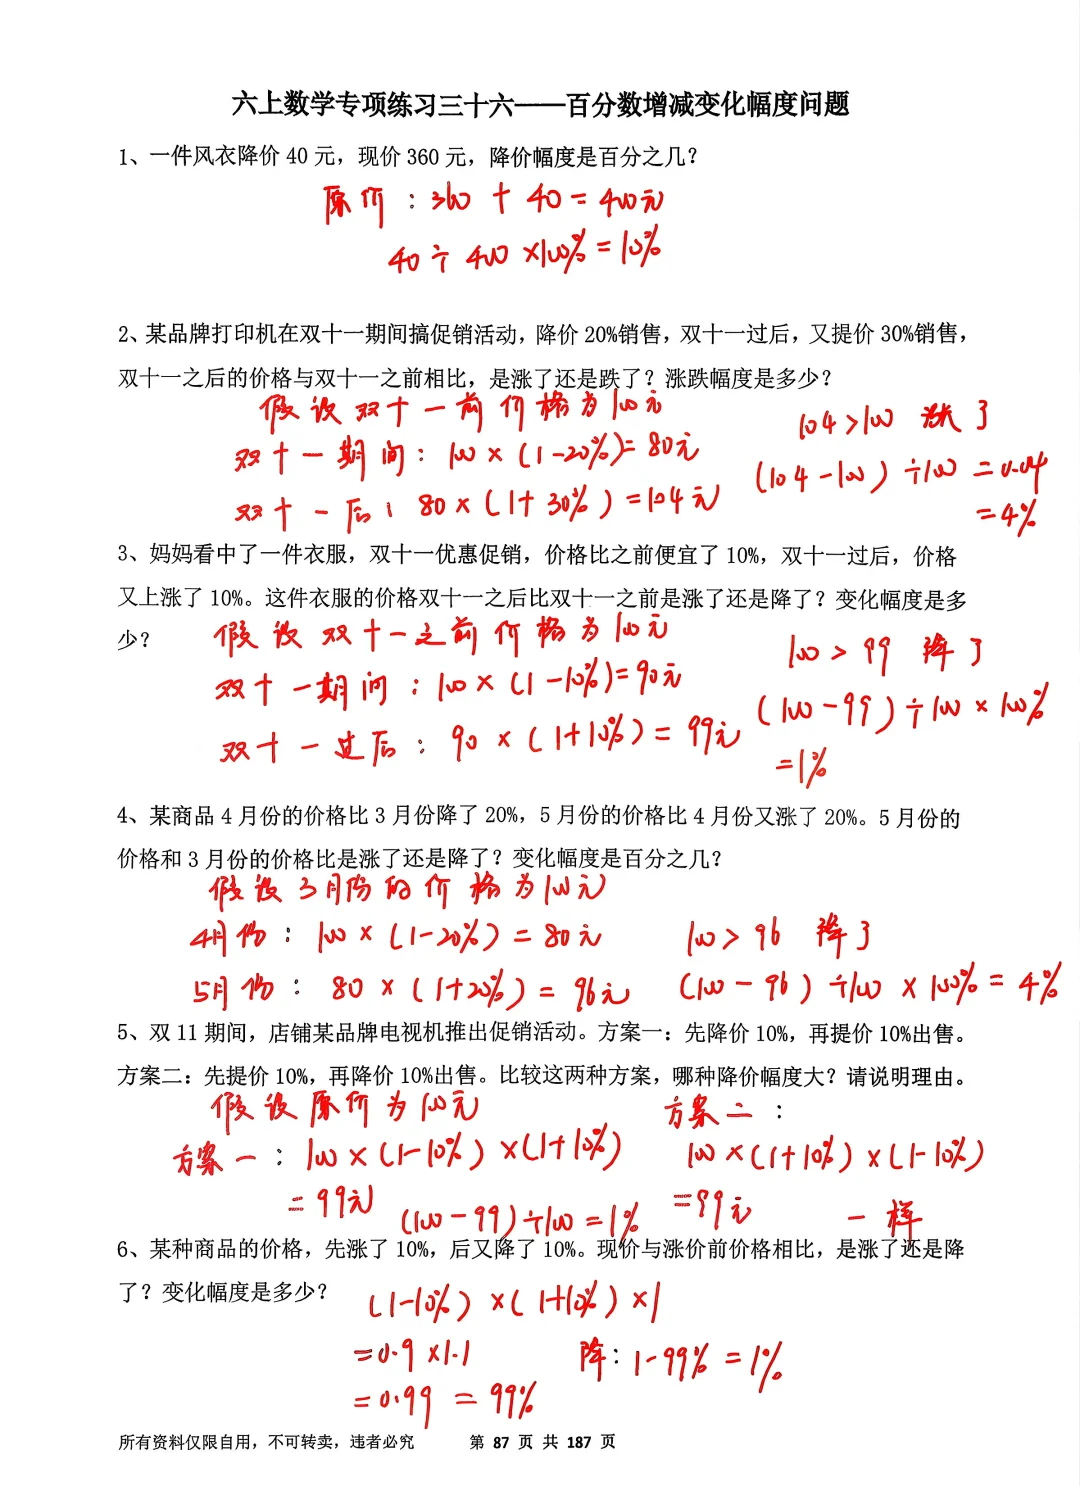 六上数学专项练习三十六——百分数增减变化幅度问题
1、一件风衣降价 40 元，现价 360 元，降价幅度是百分之几？
原价：360 + 40 = 400元
40 ÷ 400 ×100% = 10%
2、某品牌打印机在双十一期间搞促销活动，降价 20%销售，双十一过后，又提价 30%销售，
双十一之后的价格与双十一之前相比，是涨了还是跌了？涨跌幅度是多少？
假设双十一前价格为100元
双十一期间：100 × (1-20%)= 80元
双十一后：80 × (1+30%) = 104元
104>100 涨了
(104-100) ÷100 = 0.04
=4%
3、妈妈看中了一件衣服，双十一优惠促销，价格比之前便宜了 10%，双十一过后，价格
又上涨了 10%。这件衣服的价格双十一之后比双十一之前是涨了还是降了？变化幅度是多
少？
假设双十一之前价格为100元
双十一期间：100 × (1-10%)= 90元
双十一过后：90 × (1+10%) = 99元
100 > 99 降了
(100-99) ÷100 × 100%
=1%
4、某商品 4 月份的价格比 3 月份降了 20%，5 月份的价格比 4 月份又涨了 20%。5 月份的
价格和 3 月份的价格比是涨了还是降了？变化幅度是百分之几？
假设3月份的价格为100元
4月份：100 × (1-20%) = 80元
5月份：80 × (1+20%) = 96元
100 > 96 降了
(100-96) ÷100 × 100% = 4%
5、双 11 期间，店铺某品牌电视机推出促销活动。方案一：先降价 10%，再提价 10%出售。
方案二：先提价 10%，再降价 10%出售。比较这两种方案，哪种降价幅度大？请说明理由。
假设原价为100元
方案一：100 × (1-10%) ×(1+10%)
= 99元
(100-99)÷100 = 1%
方案二：
100 ×(1+10%) ×(1-10%)
=99元
一样
6、某种商品的价格，先涨了 10%，后又降了 10%。现价与涨价前价格相比，是涨了还是降
了？变化幅度是多少？
(1-10%) ×(1+10%) ×1
=0.9 ×1.1
=0.99 = 99%
降：1-99% = 1%
所有资料仅限自用，不可转卖，违者必究 第 87 页 共 187 页